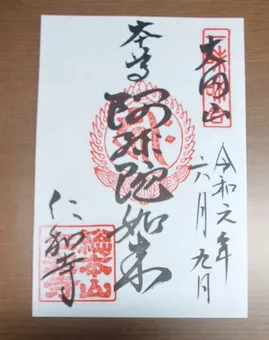 大内山
令和元年
六月九日
本尊
阿弥陀如来
仁和寺
總本山